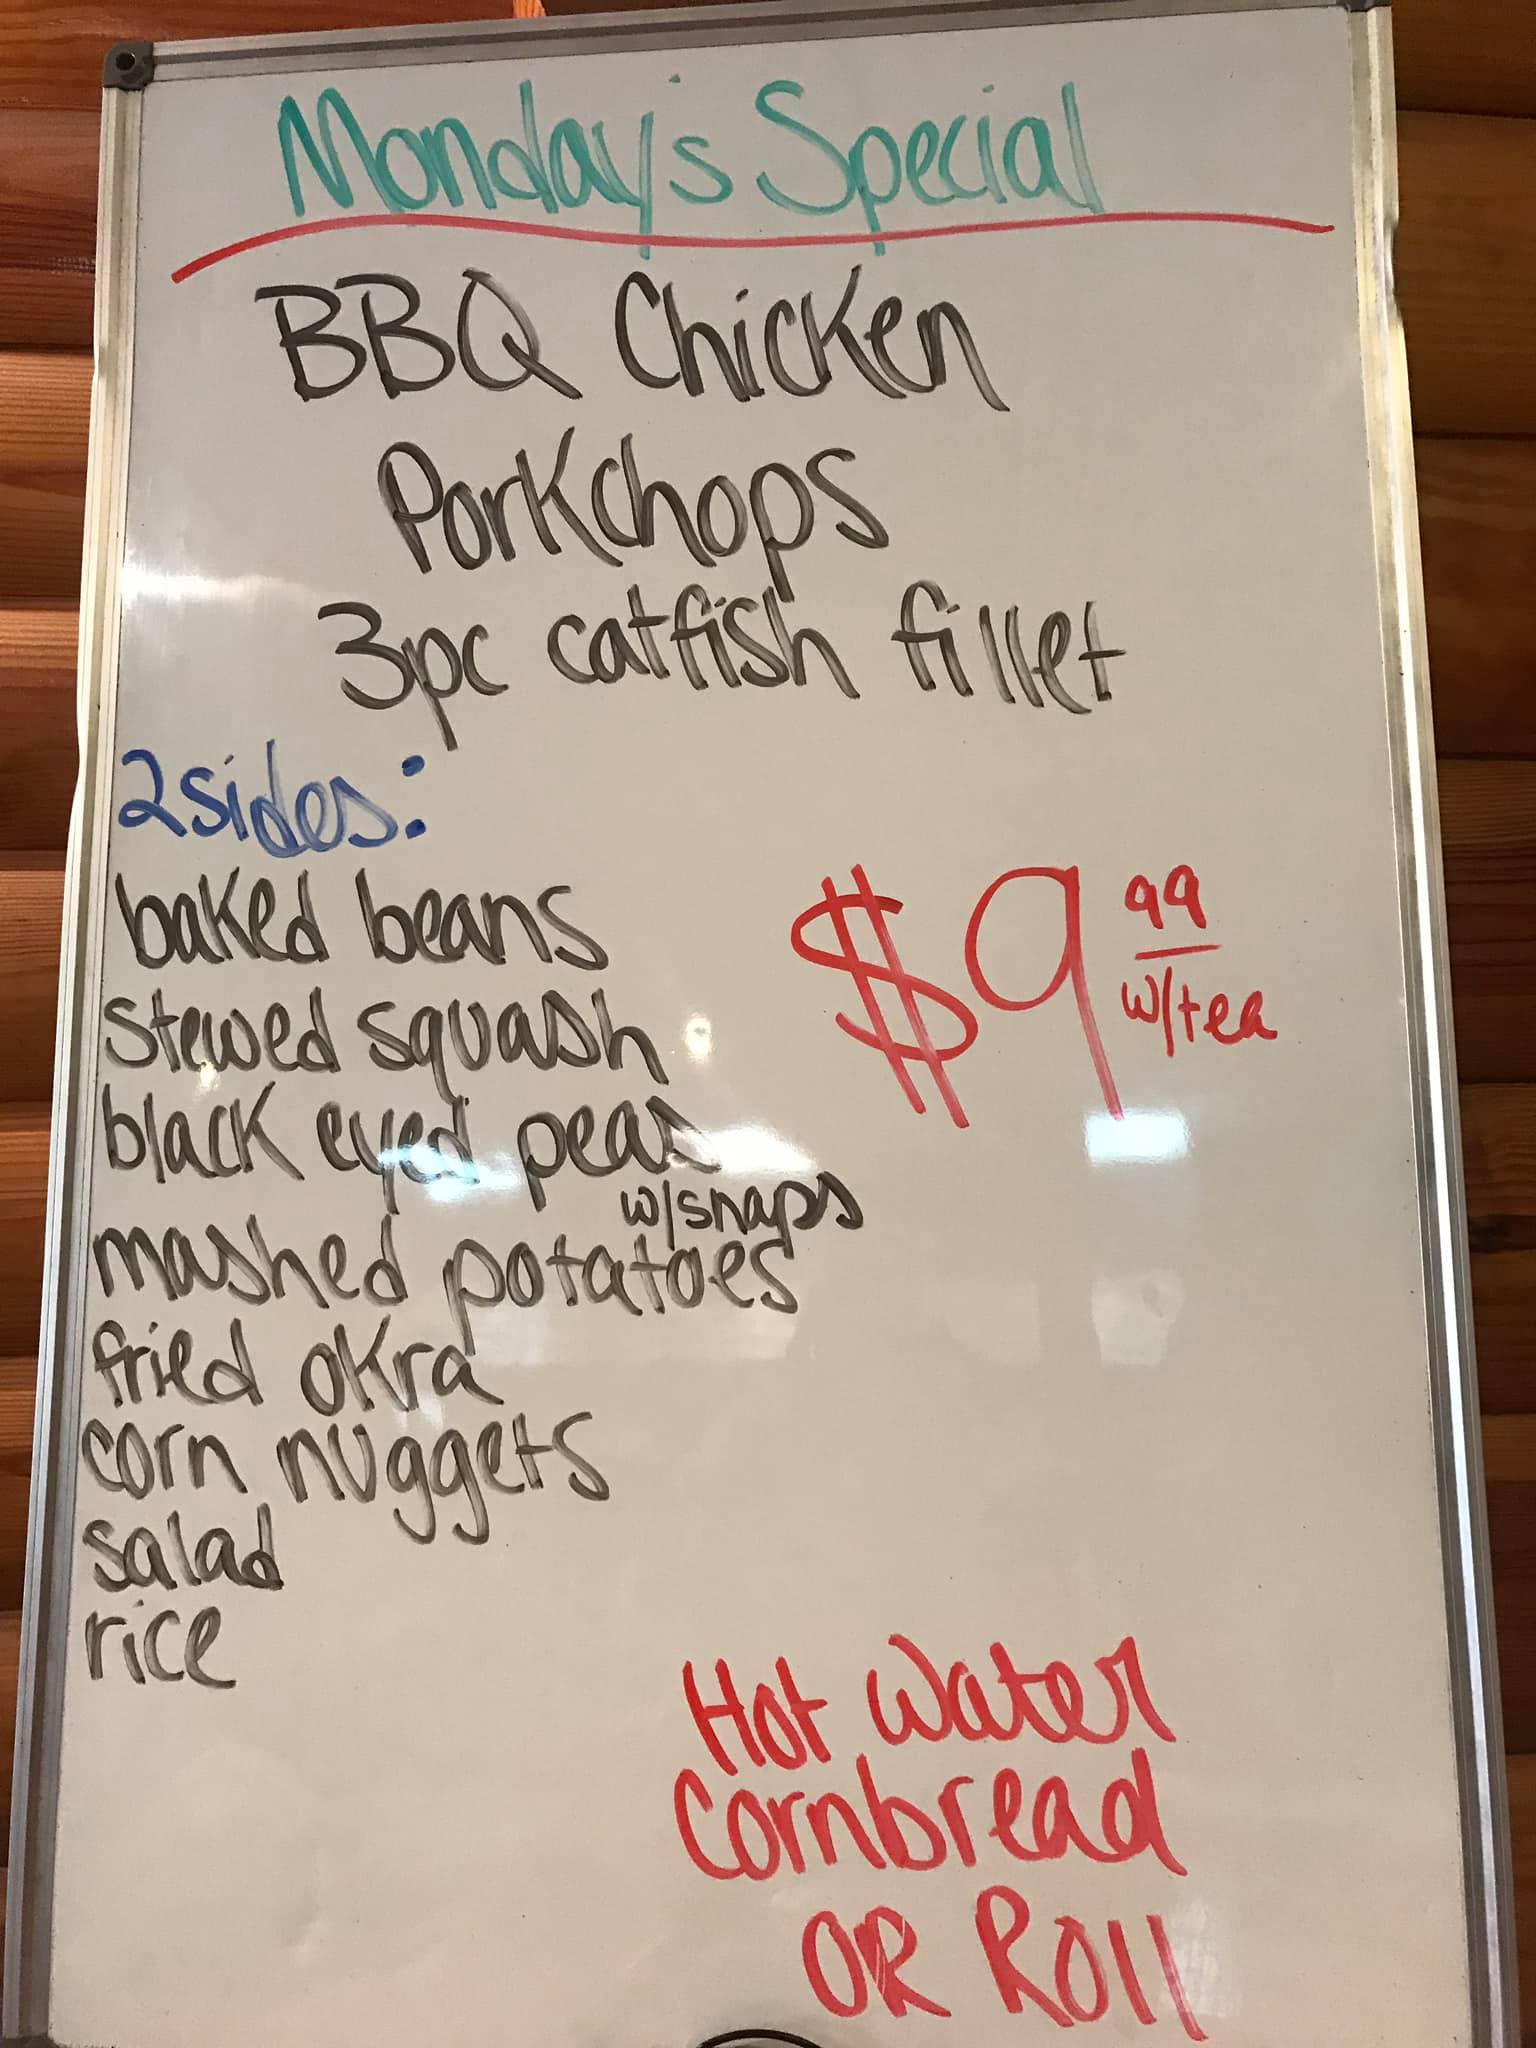 Monday's Special
BBQ Chicken
Porkchops
3pc catfish fillet
2sides:
baked beans
stewed squash
black eyed peas
w/snaps
mashed potatoes
fried okra
corn nuggets
salad
rice
$9 99
w/tea
Hot Water
Cornbread
OR Roll